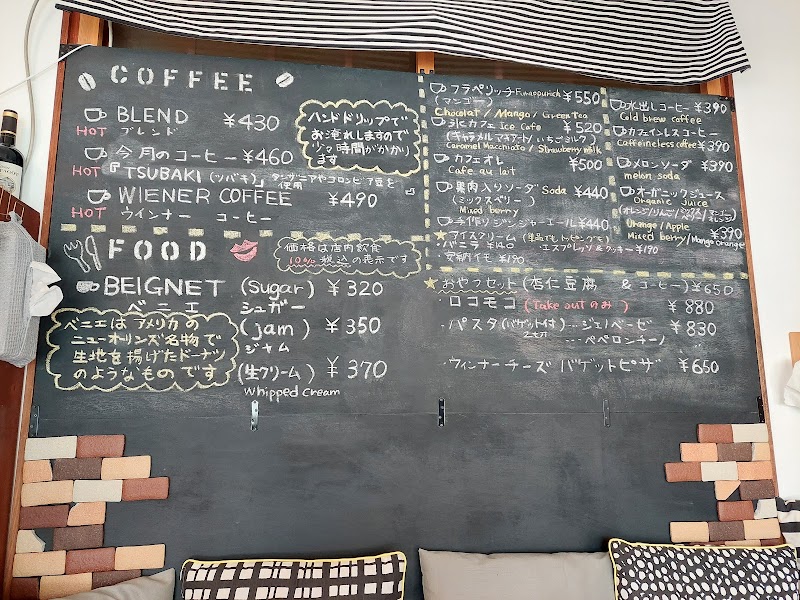 COFFEE
BLEND ¥430
HOT ブレンド
今月のコーヒー ¥460
HOT 『TSUBAKI(ツバキ)』タンザニアやコロンビア豆を使用
WIENER COFFEE ¥490
HOT ウインナー コーヒー
ハンドドリップで
お淹れしますので
少々時間がかかり
ます
FOOD
価格は店内飲食
10%税込の表示です
BEIGNET (sugar) ¥320
ベニエ シュガー
(jam) ¥350
ジャム
(生クリーム) ¥370
Whipped cream
ベニエはアメリカの
ニューオーリンズ名物で
生地を揚げたドーナツ
のようなものです
フラペリッチ ¥550
(マンゴー)
Chocolat / Mango / Green Tea
氷カフェ Ice Cafe ¥520
(キャラメルマキアート/いちごミルク)
Caramel Macchiato / Strawberry milk
カフェオレ ¥500
Cafe au lait
果肉入りソーダ Soda ¥440
(ミックスベリー)
Mixed berry
手作りジンジャーエール ¥440
★アイスクリーム(単品でもトッピングでも)
・バニラ ¥140 ・エスプレッソ&クッキー ¥190
・安納イモ ¥190
水出しコーヒー ¥390
Cold brew coffee
カフェインレスコーヒー
caffeineless coffee ¥390
メロンソーダ ¥390
melon soda
オーガニックジュース
Organic juice
Orange / Apple ¥390
Mixed berry / Mango Orange
★おやつセット(杏仁豆腐 & コーヒー) ¥650
ロコモコ (Take outのみ) ¥880
・パスタ(バゲット付)…ジェノベーゼ ¥830
…ペペロンチーノ
・ウィンナーチーズ バゲットピザ ¥650